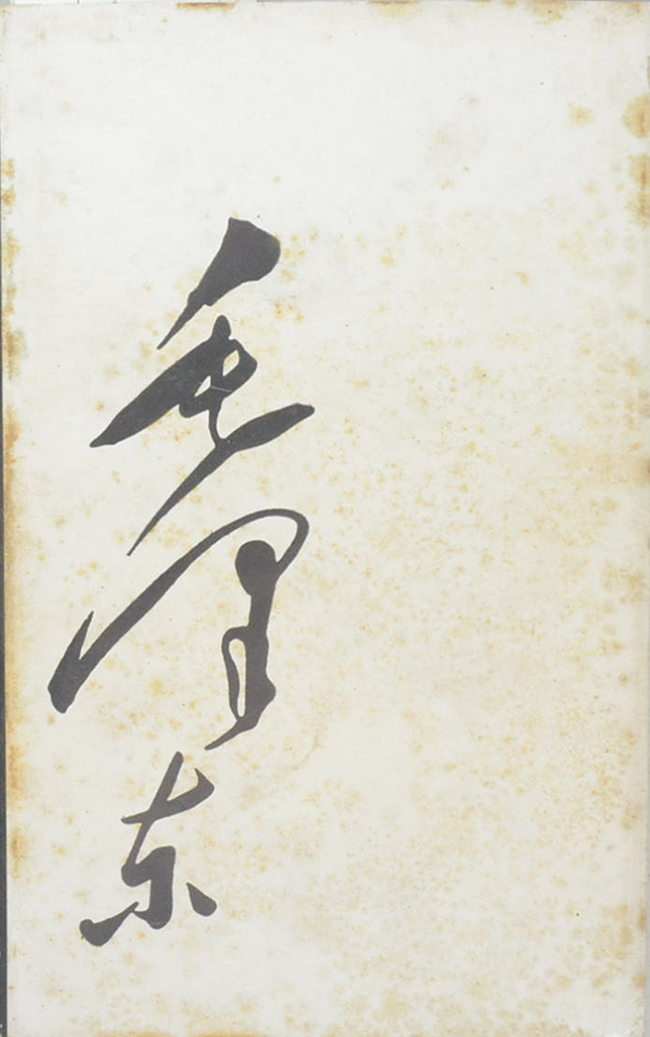 毛泽东